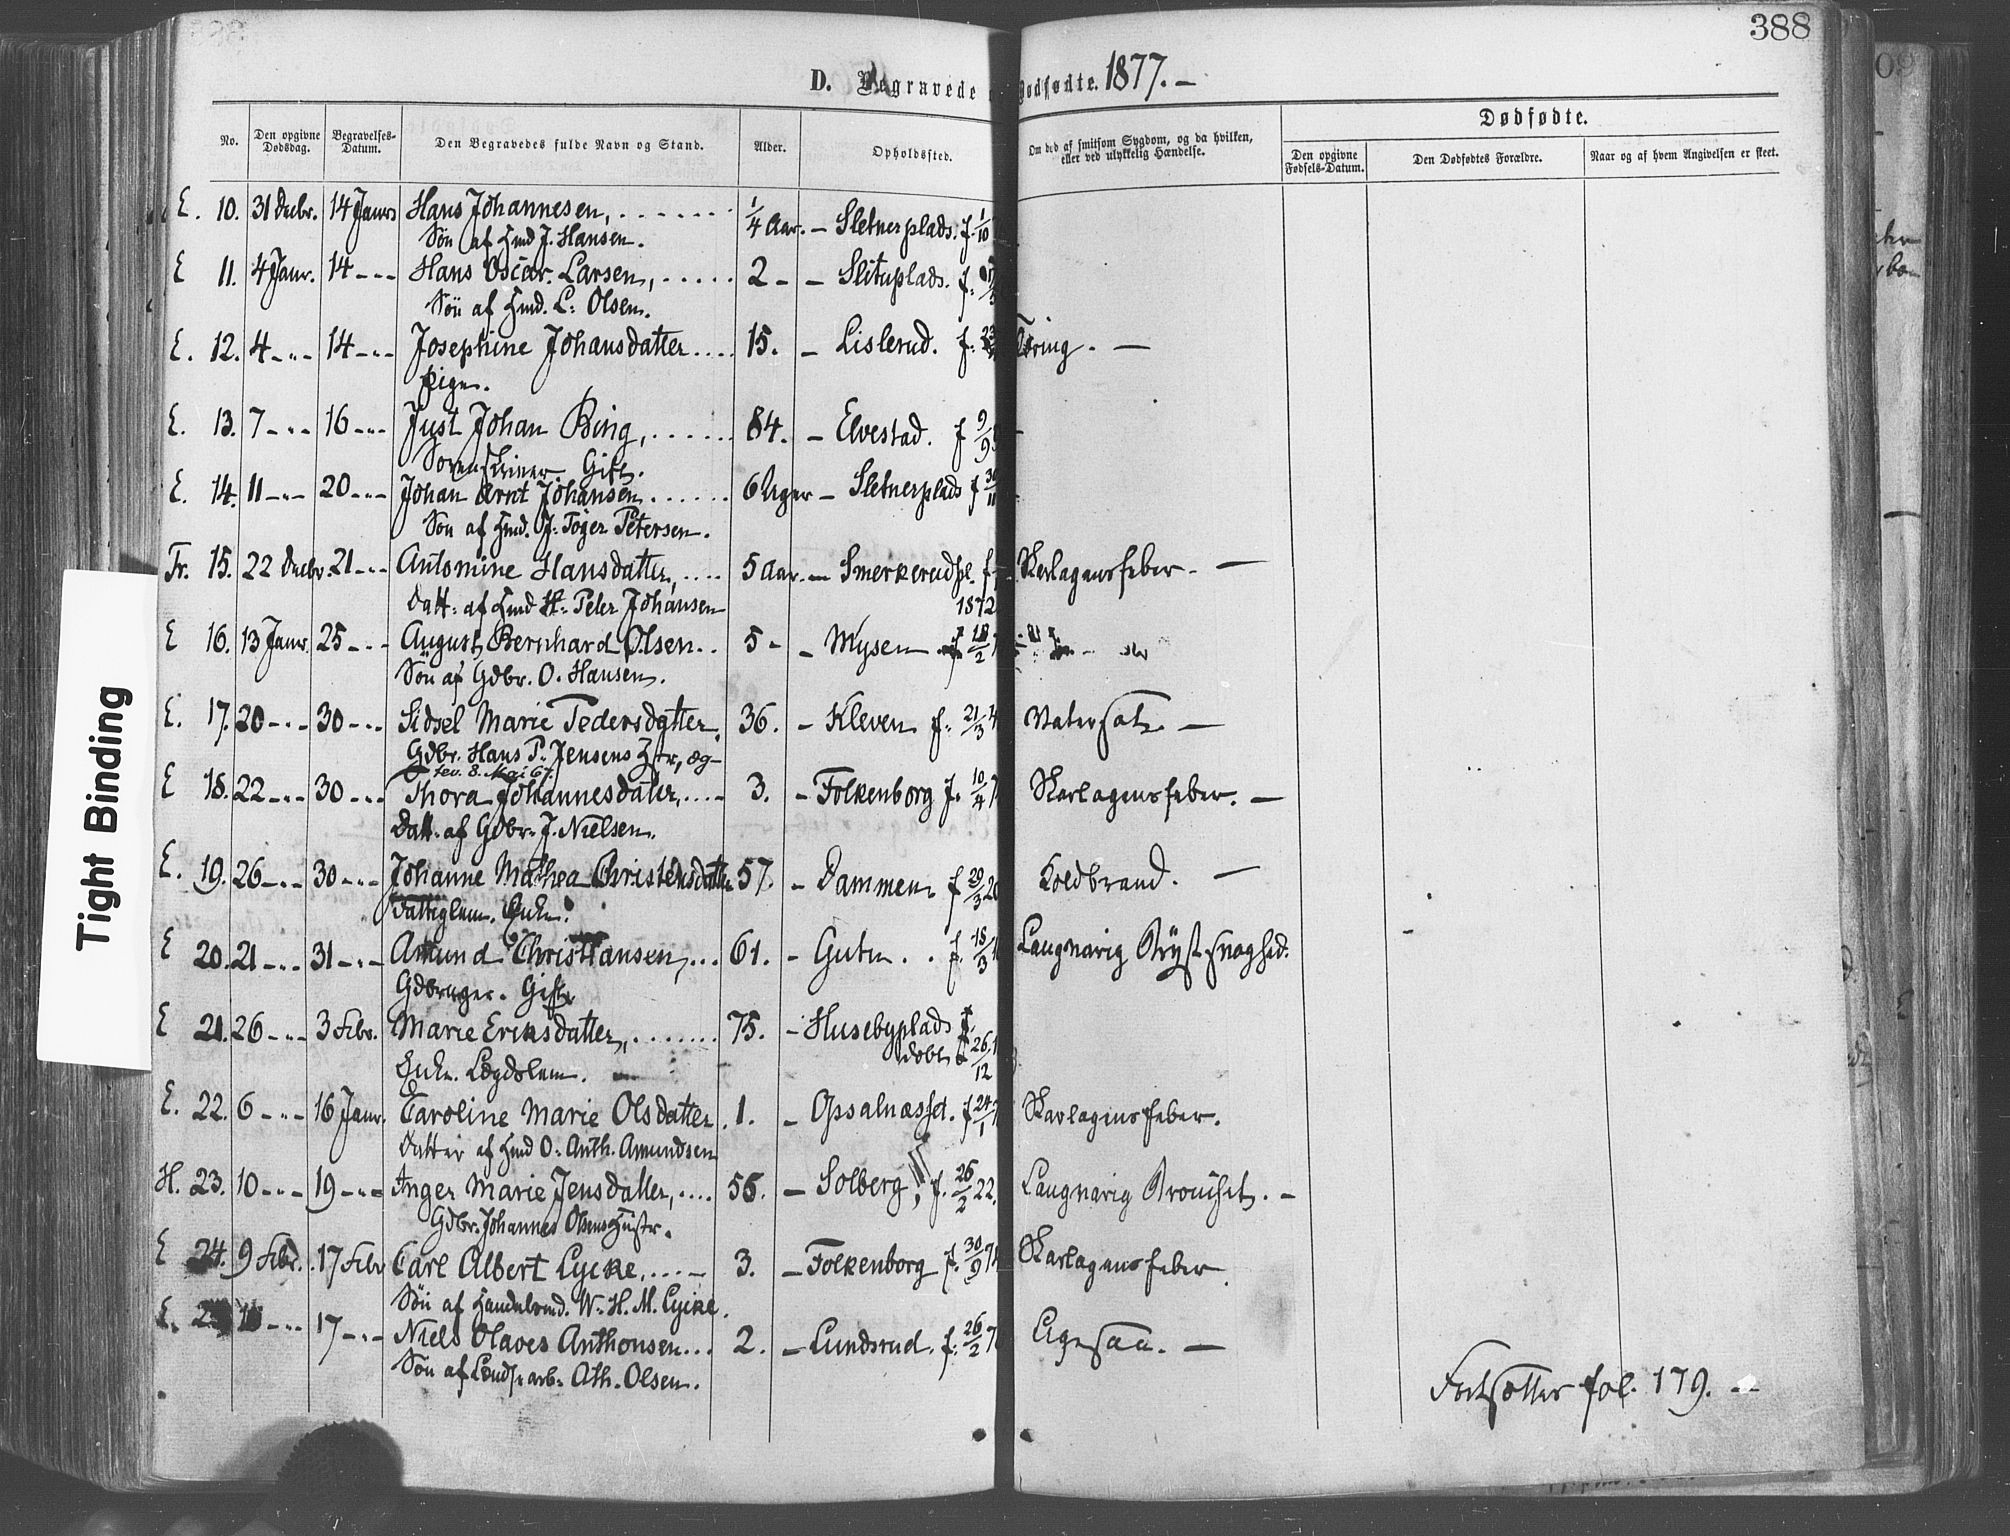 388
D. Begravede Dødfødte. 1877. —
No. Den opgivne Dødsdag. Begravelses-Datum. Den Begravedes fulde Navn og Stand. Alder. Opholdssted. Om død af smitsom Sygdom, og da hvilken, eller ved ulykkelig Hændelse. Dødfødte.
Den opgivne Fødsels-Datum. Den Dødfødtes Forældre. Naar og af hvem Angivelsen er skeet.
E. 10. 31 Decbr. 14 Janr Hans Johannesen, 1/4 Aar. — Sletnerplads. f. 1/10
Søn af Hmd J. Hansen.
E 11. 4 Janr. 14 - - - Hans Oscar Larsen, 2 - - Slituplads. f.
Søn af Hmd. L. Olsen.
E. 12. 4 - " - 14 - " - Josephine Johansdatter 15. - Lislerud. f. 23 Tæring. —
Pige.
E. 13. 7 - " - 16 - " - Just Johan Bing, 84. - Elvestad. f 9/9
Sorenskriver Gift.
E. 14. 11 - " - 20 - " - Johan Arnt Johansen 6 Uger - Sletnerplads f 30/11
Søn af Hmd. J. Toger Petersen.
Fr. 15. 22 Decbr. 21 - " - Antomine Hansdatter, 5 Aar. — Smerkerudpl. f Skarlagensfeber. —
Datt. af Hmd H. Peter Johansen 1872
E 16. 13 Janr. 25 - - - August Bernhard Olsen 5 - - Mysen f 18/2
Søn af Gdbr. O. Hansen.
E. 17. 20 - " - 30 - " - Sidsel Marie Pedersdatter, 36. - Kleven f. 21/3 4 Vatersot. —
Gdbr. Hans P. Jensens Hstr, æg-
tev. 8. Mai 67.
E 18. 22 - " - 30 - " - Thora Johannesdatter, 3. - Folkenborg f. 10/4 7 Skarlagensfeber. —
Datt. af Gdbr. J. Nielsen.
E. 19. 26 - " - 30 - " - Johanne Mathea Christensdatter 57. - Dammen f 20/3 20 Koldbrand. —
Fattiglem. Enke.
E 20. 21 - " - 31 - " - Amund Christiansen, 61. - Guten . . f. 18/3 1 Langvarig Brystsvaghed.
Gdbruger. Gift
E 21. 26 - " - 3 Febr. Marie Eriksdatter, 75. - Husebyplads f.
døbt 26/12 1
Enke. Lægdslem.
E. 22. 6 - " - 16 Janr. Caroline Marie Olsdatter. 1. - Opsalnæsset. f 24/1 Skarlagensfeber.
Datter af Hmd O. Anth. Amundsen
H. 23. 10 - " - 19 - " - Inger Marie Jensdatter, 55. - Solberg, f. 26/2 22. Langvarig Bronchit. -
Gdbr. Johannes Olsens Hustr.
E 24. 9 Febr. 17 Febr Carl Albert Lycke, 3. - Folkenborg f. 30/9 7 Skarlagensfeber.
Søn af Handelsmd. W. H. M. Lycke.
E. 17 - " - Niels Olaves Anthonsen 2. - Lundsrud. f. 26/2 7 Ligesaa. —
Søn af Løndsarb. Ath. Olsen.
Fortsættes fol. 179. —
Tight Binding